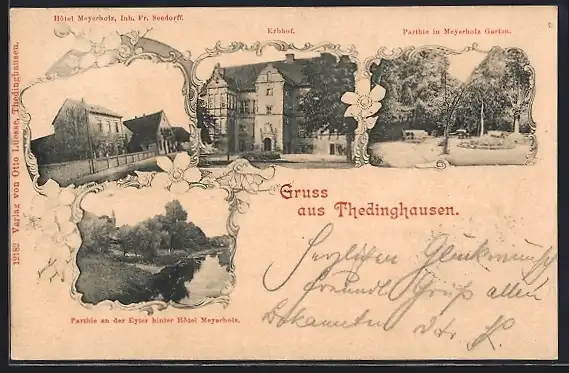 Hôtel Meyerholz, Inh. Fr. Seedorff.
Erbhof.
Parthie in Meyerholz Garten.
12182 Verlag von Otto Luesse, Thedinghausen.
Gruss
aus Thedinghausen.
Herzlichen Glückwunsch
freundl Gruß allen
Bekannten
Parthie an der Eyter hinter Hôtel Meyerholz.